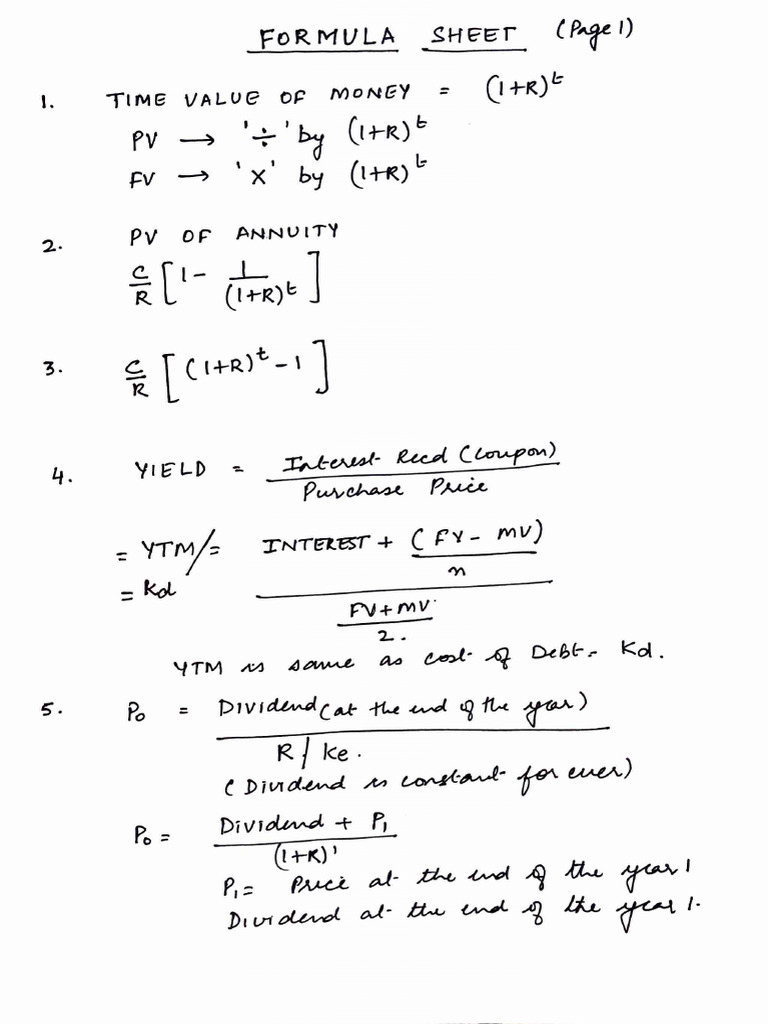 FORMULA SHEET (Page 1)
1. TIME VALUE OF MONEY = (1+R)^t
PV → '÷' by (1+R)^t
FV → 'x' by (1+R)^t
2. PV OF ANNUITY
C/R [1 - 1/(1+R)^t]
3. C/R [(1+R)^t - 1]
4. YIELD = Interest Recd (Coupon) / Purchase Price
= YTM/= INTEREST + (FV - MV)/n
= Kd
FV+MV / 2.
YTM is same as cost of Debt - Kd.
5. P0 = Dividend (at the end of the year)
R/Ke.
(Dividend is constant for ever)
P0 = Dividend + P1
(1+R)^1
P1 = Price at the end of the year 1
Dividend at the end of the year 1.